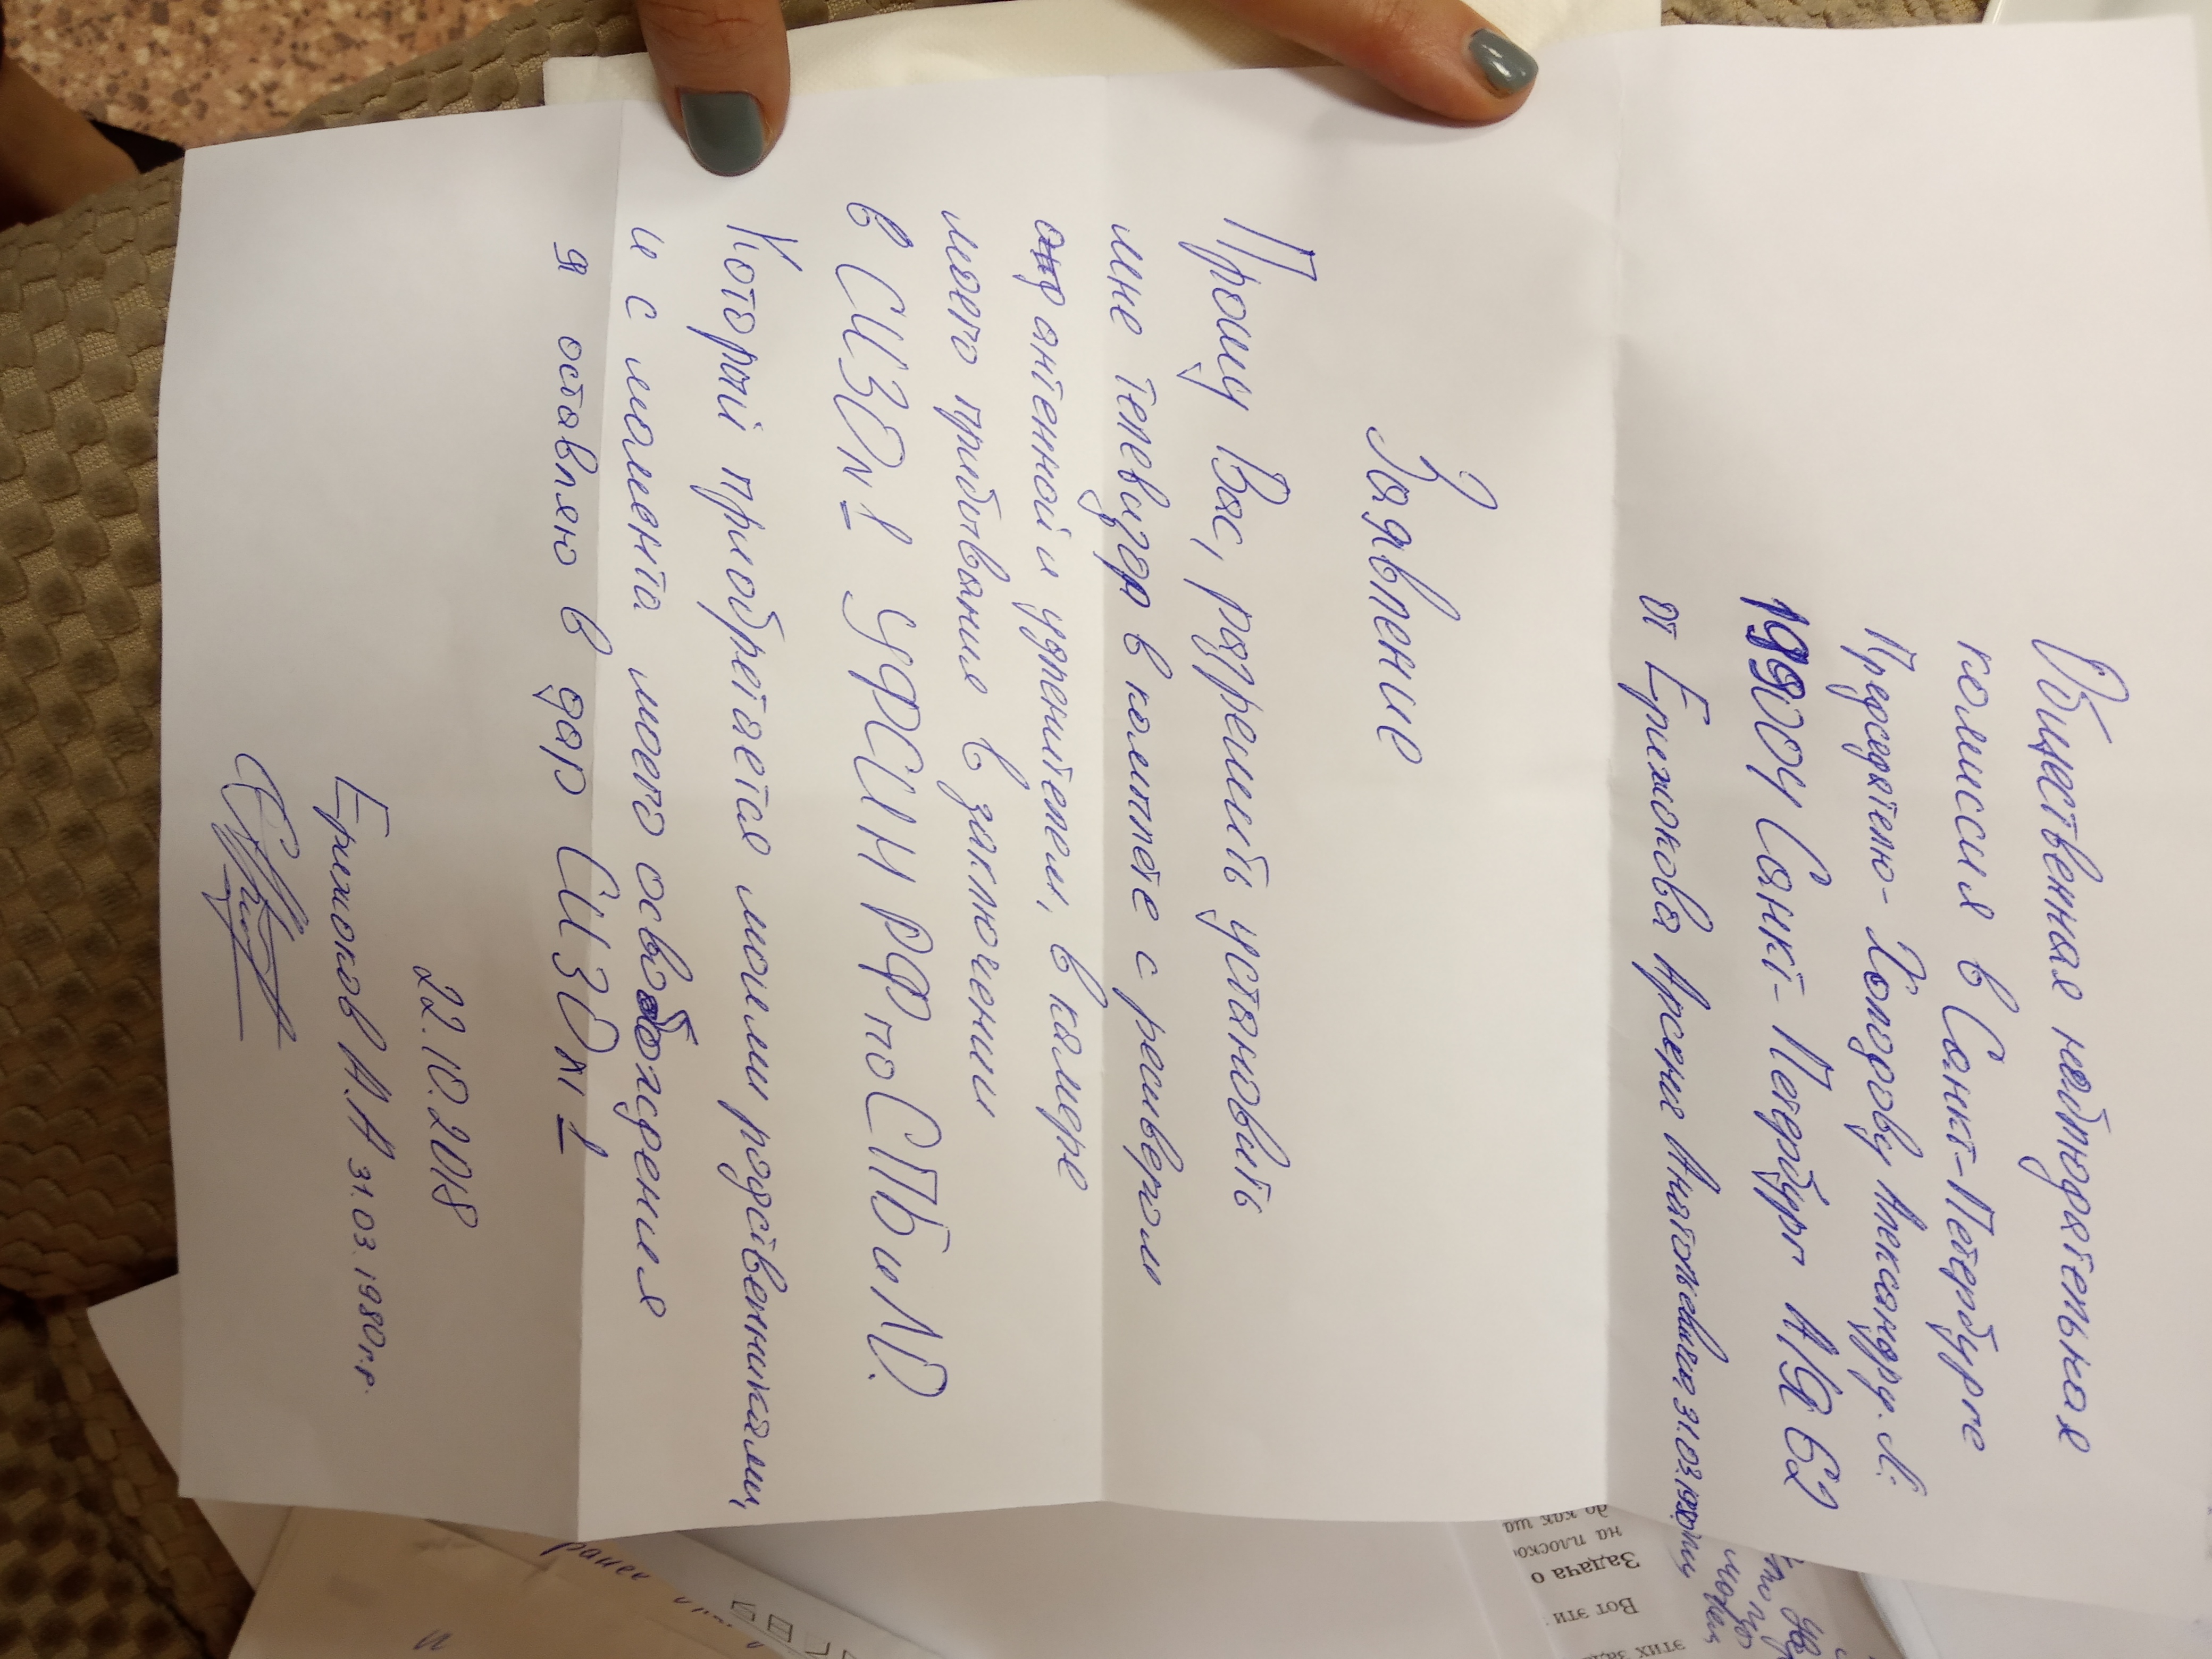 Общественная наблюдательная
комиссия в Санкт-Петербурге
Председателю - Холодову Александру. Л.
199004 Санкт-Петербург А/Я 62
от Ерихокова Арсена Анатольевич 31.03.1980
Заявление
Прошу Вас, разрешить установить
мне телевизор в комплете с ресивером
антенной и удленителем, в камере
моего прибования в заключении
в СИЗО №1 УФСИН РФ по СПБ и ЛО.
Который приобретается моими родственниками,
и с момента моего освобождения
я оставляю в дар СИЗО №1
22.10.2018
Ерихоков А.А 31.03.1980г.р.
ранее
до как ша
на плоско
Задача о
Вот эти
этих зада